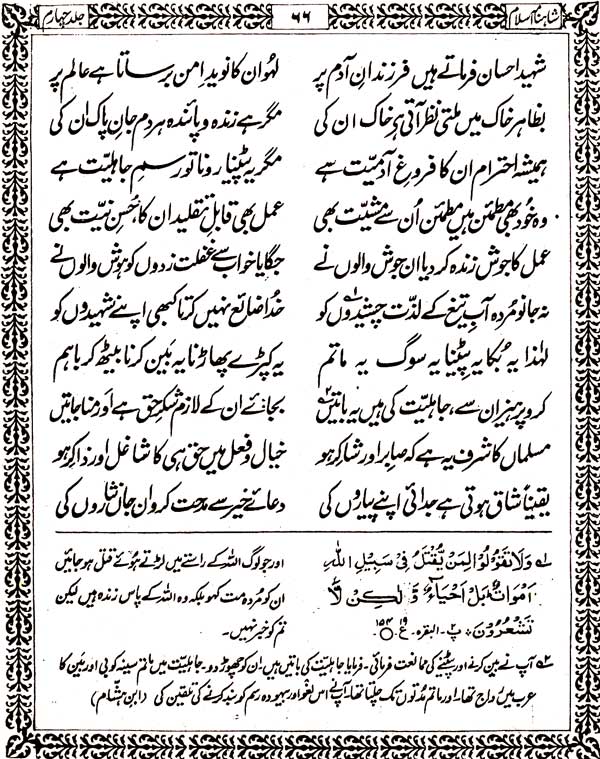 شاہنامہ اسلام ۶۶ جلد چہارم
شہید احسان فرماتے ہیں فرزندانِ آدم پر لہو ان کا نویدِ امن برساتا ہے عالم پر
بظاہر خاک میں ملتی نظر آتی ہے خاک ان کی مگر ہے زندہ و پائندہ ہر دم جانِ پاک ان کی
ہمیشہ احترام ان کا فروغِ آدمیت ہے مگر یہ پیٹنا رونا تو رسمِ جاہلیت ہے
وہ خود بھی مطمئن ہیں مطمئن اُن سے مشیّت بھی عمل بھی قابلِ تقلید ان کا، حُسنِ نیّت بھی
عمل کا جوش زندہ کر دیا ان جوش والوں نے جگایا خواب سے غفلت زدوں کو ہوش والوں نے
نہ جانو مُردہ آبِ تیغ کے لذّت چشیدوں کو۱؎ خدا ضائع نہیں کرتا کبھی اپنے شہیدوں کو
لہٰذا یہ بُکا یہ پیٹنا یہ سوگ یہ ماتم یہ کپڑے پھاڑنا یہ بَین کرنا بیٹھ کر باہم
کرو پرہیز ان سے، جاہلیّت کی ہیں یہ باتیں۲؎ بجائے ان کے لازم شکرِ حق ہے اور مناجاتیں
مسلماں کا شرف یہ ہے کہ صابر اور شاکر ہو خیال و فعل میں حق ہی کا شاغل اور ذاکر ہو
یقیناً شاق ہوتی ہے جدائی اپنے پیاروں کی دعائے خیر سے مدحت کرو ان جاں نثاروں کی
۱؎ وَلَا تَقُوْلُوْا لِمَنْ يُّقْتَلُ فِیْ سَبِيْلِ اللّٰهِ اور جو لوگ اللہ کے راستے میں لڑتے ہوئے قتل ہو جائیں
اَمْوَاتٌ ؕ بَلْ اَحْيَآءٌ وَّ لٰكِنْ لَّا ان کو مُردہ مت کہو بلکہ وہ اللہ کے پاس زندہ ہیں لیکن
تَشْعُرُوْنَ ۞ پ۲۔ البقرہ۔ ع۱۹۔ ۱۵۴ تم کو خبر نہیں۔
۲؎ آپ نے بین کرنے اور پیٹنے کی ممانعت فرمائی۔ فرمایا جاہلیّت کی باتیں ہیں۔ ان کو چھوڑ دو۔ جاہلیّت میں ماتم سینہ کوبی اور بَین کا
عرب میں رواج تھا۔ اور ماتم مدّتوں تک چلتا تھا۔ آپ نے اس لغو اور بیہودہ رسم کو بند کرنے کی تلقین کی (ابن ہشّام)